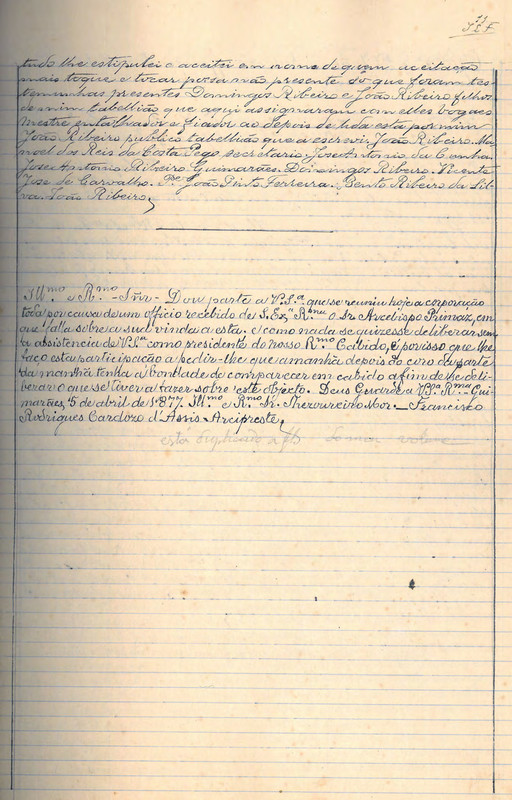 tudo lhe estipulei e aceitei em nome de quem aceitação
mais toque e tocar possa não presente do que foram tes
temunhas presentes Domingos Ribeiro e João Ribeiro filhos
de mim tabellião que aqui assignaram com elles vogaes
mestre entalhador e fiador ao depois de lida esta por mim
João Ribeiro publico tabellião que a escrevi João Ribeiro. Ma
noel dos Reis da Costa Pego, secretario. José Antonio da Cunha.
José Antonio Ribeiro Guimarães. Domingos Ribeiro. Vicente
José de Carvalho. Pe. João Pinto Ferreira. Bento Ribeiro da Sil
va. João Ribeiro,
Illmo e Rmo Snr. Dou parte a V. S.a que se reuniu hoje a corporação
toda por causa de um officio recebido de S. Exa Rma o Sr Arcebispo Primaz, em
que falla sobre a sua vinda a esta. e como nada se quizesse deliberar sem
a assistencia de V. S.a como presidente do nosso Rmo Cabido, é por isso que lhe
faço esta participação a pedir-lhe que amanhã depois do coro da parte
da manhã tenha a bondade de comparecer em cabido a fim de se deli
berar o que se tiver a fazer sobre este objecto. Deus Guarde a V. Sa. Rma Gui
marães, 5 de abril de 1877 Illmo e Rmo Sr. Thesoureiro Mor. Francisco
Rodrigues Cardozo d'Assis. Arcipreste,
está duplicado a fls